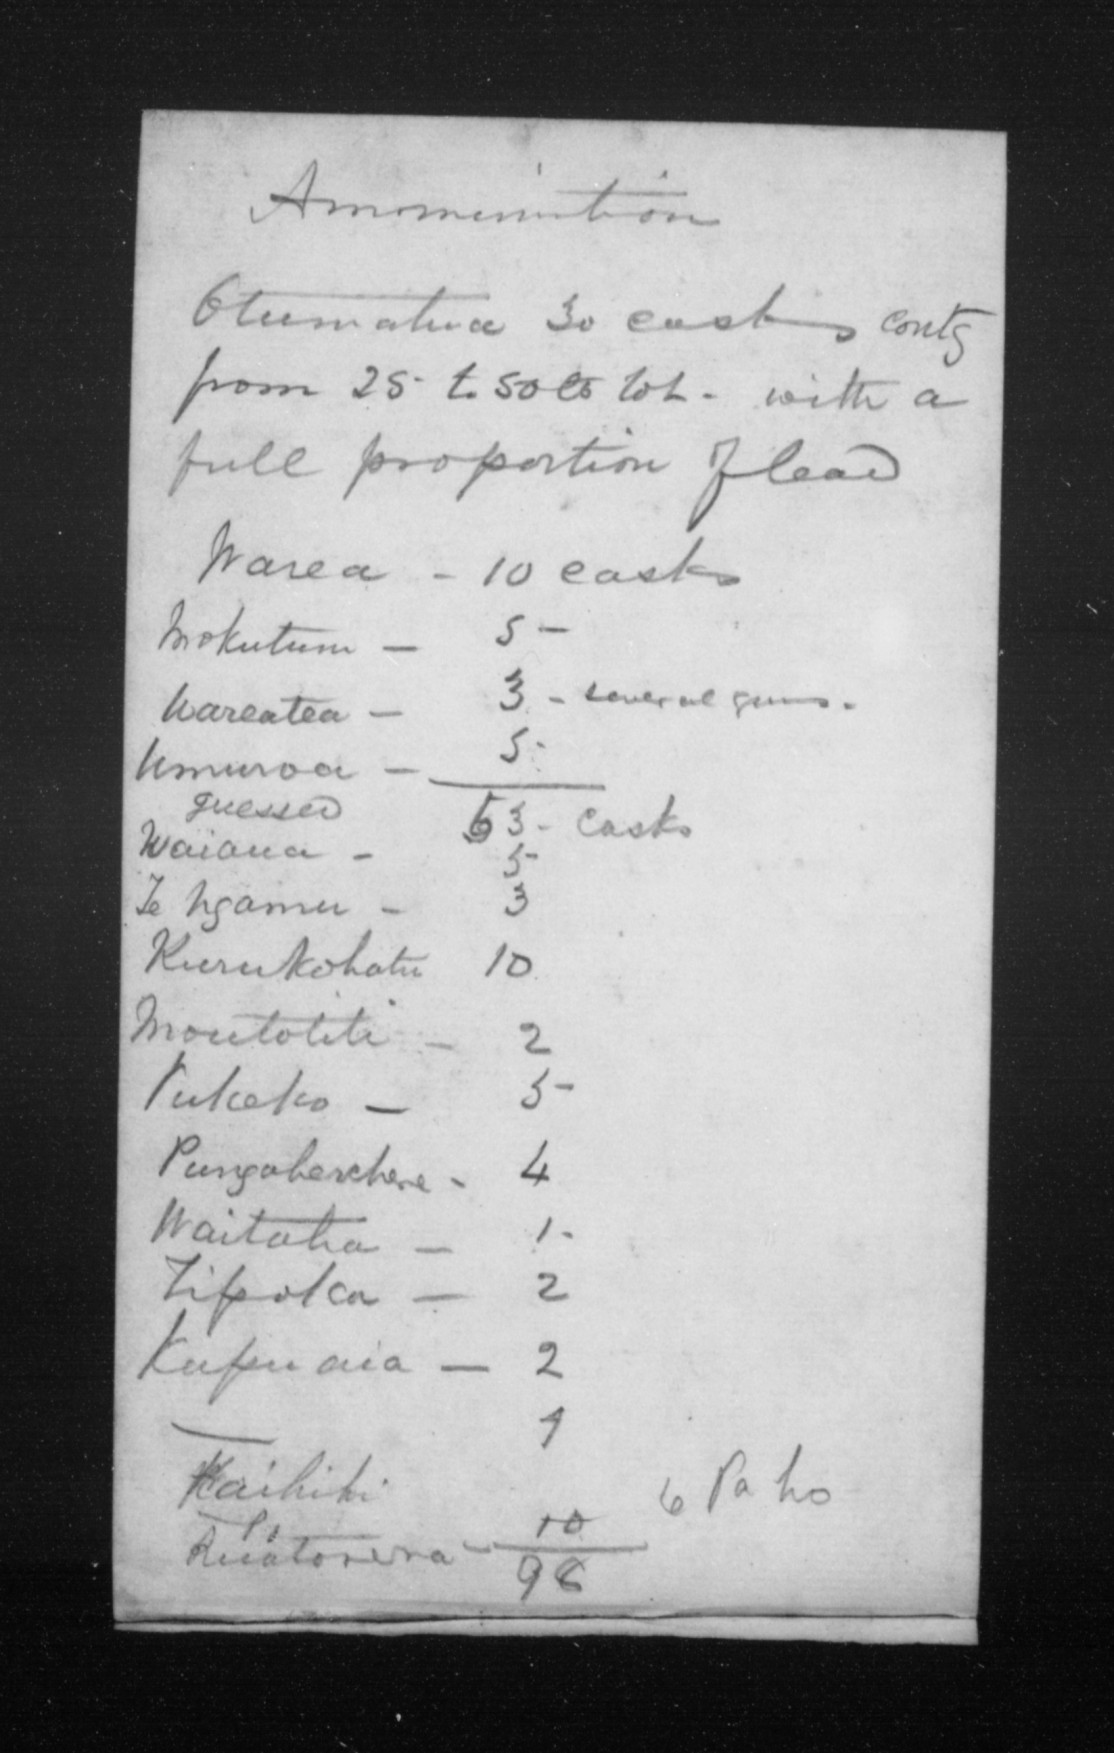 Ammunition
Otumatua 30 casks contg
from 25 to 50 lb wt. with a
full proportion of lead
Warea - 10 casks
Mokutunu - 5 -
Wareatea - 3 - several guns.
Umuroa - 5 -
guessed 53 - casks
Waiaua - 5 -
Te Ngamu - 3
Kurukohatu 10
Moutoliti - 2
Pukeko - 5 -
Pungaherehere - 4
Waitaha - 1 -
Tipoka - 2
Kapuaia - 2
1
Kaihihi 6 Pa ho
10
Ruatorera - 98